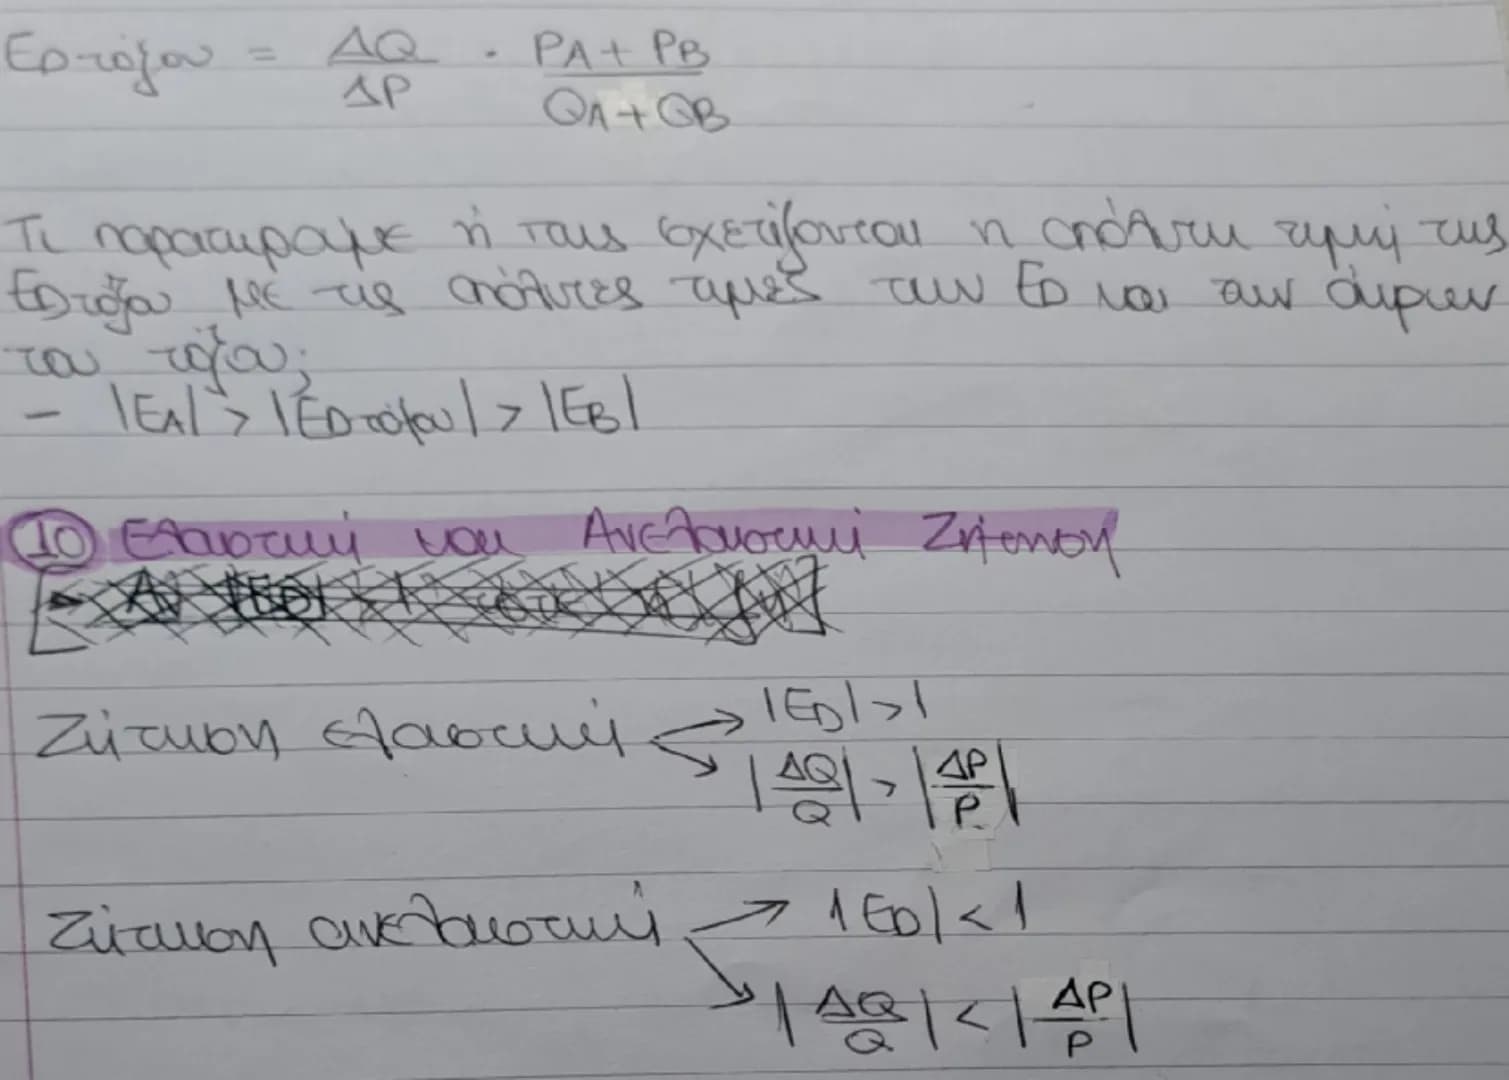 ED τόξου = ΔQ/ΔP · PA + PB/QA + QB
Τι παρατηρούμε ή πως σχετίζονται η απόλυτη τιμή της
ED τόξου με τις απόλυτες τιμές των ED και των άκρων
του τόξου;
- |EA| > |ED τόξου| > |EB|
10 Ελαστική και Ανελαστική Ζήτηση
Ζήτηση ελαστική → |ED| > 1
→ |ΔQ/Q| > |ΔP/P|
Ζήτηση ανελαστική → |ED| < 1
→ |ΔQ/Q| < |ΔP/P|